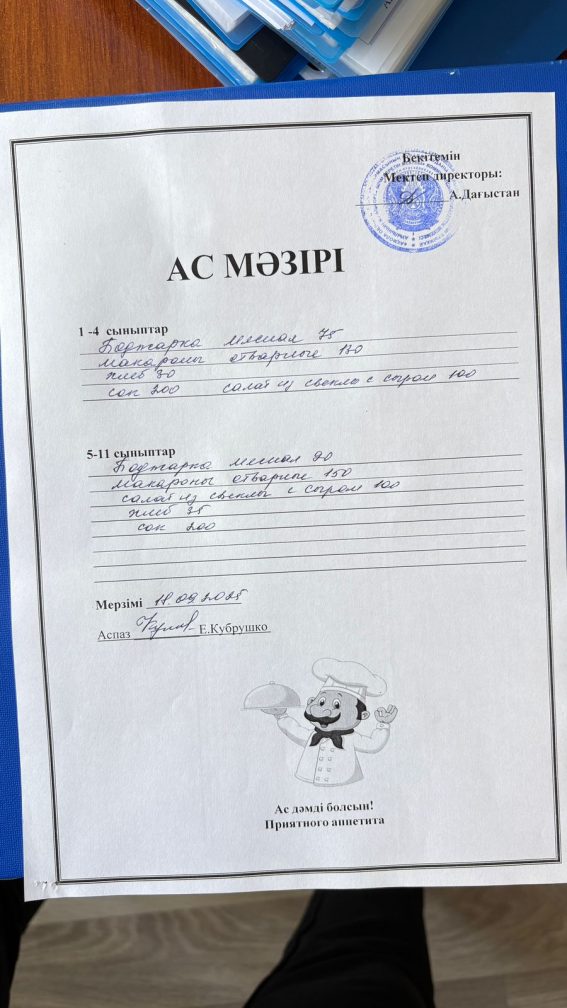 Бекітемін
Мектеп директоры:
А.Дағыстан
АС МӘЗІРІ
1 -4 сыныптар
Поджарка мясная 75
макароны отварные 130
хлеб 30
сок 200 салат из свеклы с сыром 100
5-11 сыныптар
Поджарка мясная 90
макароны отварные 150
салат из свеклы с сыром 100
хлеб 35
сок 200
Мерзімі .09.2025
Аспаз Е.Кубрушко
Ас дәмді болсын!
Приятного аппетита